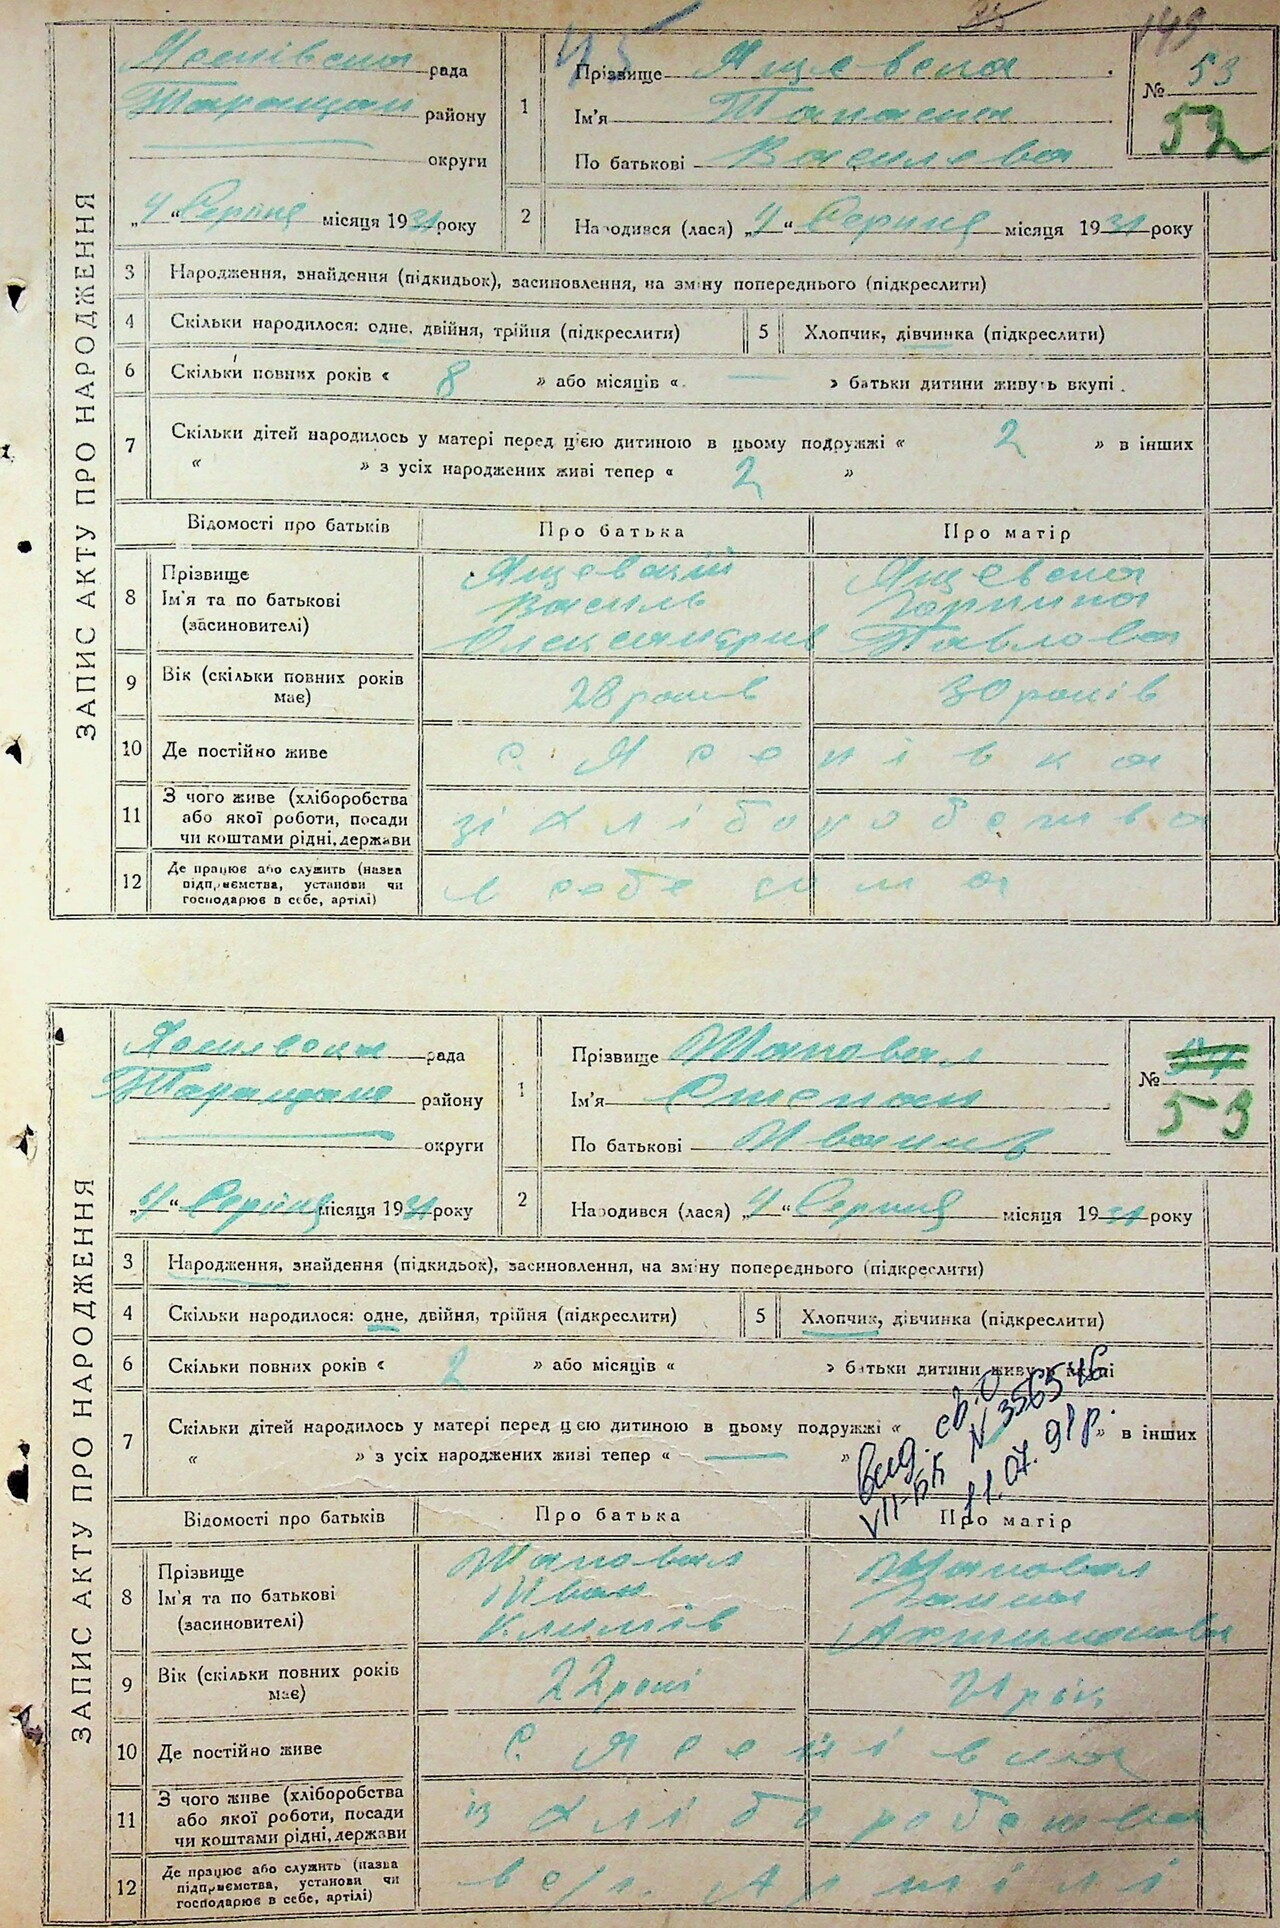 45
149
ЗАПИС АКТУ ПРО НАРОДЖЕННЯ
рада
Таращан району
округи
„4“ Серпня місяця 1931 року
1
Прізвище Яцевска
Ім'я
По батькові Василева
№ 53
52
2
Народився (лася) „4“ Серпня місяця 1931 року
3
Народження, знайдення (підкидьок), засиновлення, на зміну попереднього (підкреслити)
4
Скільки народилося: одне, двійня, трійня (підкреслити)
5
Хлопчик, дівчинка (підкреслити)
6
Скільки повних років « 8 » або місяців « — » батьки дитини живуть вкупі
7
Скільки дітей народилось у матері перед цією дитиною в цьому подружжі « 2 » в інших
« » з усіх народжених живі тепер « 2 »
Відомості про батьків
Про батька
Про матір
8
Прізвище
Ім'я та по батькові
(засиновителі)
Василь
Яцевска
Павлова
9
Вік (скільки повних років
має)
28 років
30 років
10
Де постійно живе
с. Ясенівка
11
З чого живе (хліборобства
або якої роботи, посади
чи коштами рідні, держави
зі хліборобства
12
Де працює або служить (назва
підприємства, установи чи
господарює в себе, артілі)
в себе дома
ЗАПИС АКТУ ПРО НАРОДЖЕННЯ
рада
району
округи
„4“ Серпня місяця 1931 року
1
Прізвище Шаповал
Ім'я Степан
По батькові Иванів
№
53
2
Народився (лася) „4“ Серпня місяця 1931 року
3
Народження, знайдення (підкидьок), засиновлення, на зміну попереднього (підкреслити)
4
Скільки народилося: одне, двійня, трійня (підкреслити)
5
Хлопчик, дівчинка (підкреслити)
6
Скільки повних років « 2 » або місяців « » батьки дитини живуть вкупі
7
Скільки дітей народилось у матері перед цією дитиною в цьому подружжі « » в інших
« » з усіх народжених живі тепер « — »
вид. св. о
VII-БК N 356546
11.07.91р.
Відомості про батьків
Про батька
Про матір
8
Прізвище
Ім'я та по батькові
(засиновителі)
Шаповал
Иван
Климів
Шаповал
Ганна
9
Вік (скільки повних років
має)
22 рокі
21 рік
10
Де постійно живе
С. Ясенівка
11
З чого живе (хліборобства
або якої роботи, посади
чи коштами рідні, держави
із хліборобства
12
Де працює або служить (назва
підприємства, установи чи
господарює в себе, артілі)
Артілі